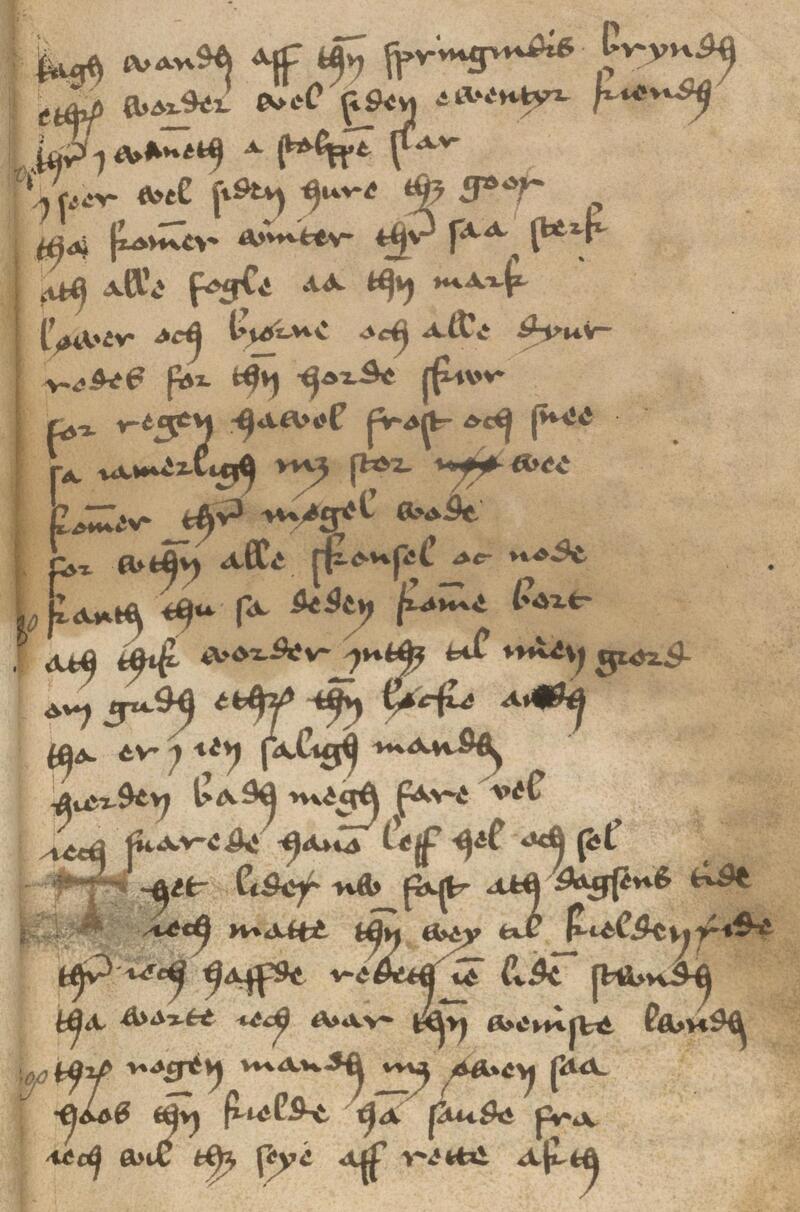 tagh wandh aff thn̄ springindis bryndh
ethr worder wel siden ewentyr kiendh
thr̄ j wan̄eth a stolppe slar
j seer wel siden hure thz goor
tha kom̄er winter thr̄ saa sterk
ath alle fogle aa thn̄ mark
løwer och biørne och alle dyur
redes for thn̄ horde skwr
for regen hawel frost och snee
sa iamerligh mz stor wee
kom̄er thr̄ møgel wode
for wthn̄ alle skonsel oc node
80 kanth thu sa deden kom̄e bort
ath thik worder jnthz til men giord
om gudh ethr thn̄ løcke andh
tha er j ien saligh mandh
hierden badh megh fare vel
iech suarede hanō leff hel och sel
Thet lider nw fast ath dagsens tide
iech matte thn̄ wey til kielden ride
thr̄ iech haffde redeth iē lidē stwndh
tha worte iech war thn̄ weniste lwndh
90 thr nogen mandh mz øwen saa
hoos thn̄ kielde hā saude fra
iech wil thz seye aff rette akth